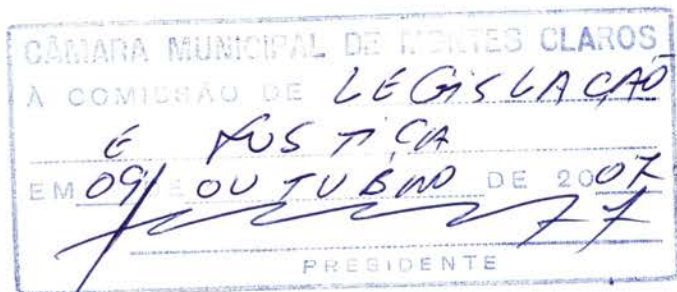 CÂMARA MUNICIPAL DE MONTES CLAROS
À COMISSÃO DE LEGISLAÇÃO
E JUSTIÇA
EM 09/ DE OUTUBRO DE 2007
PRESIDENTE